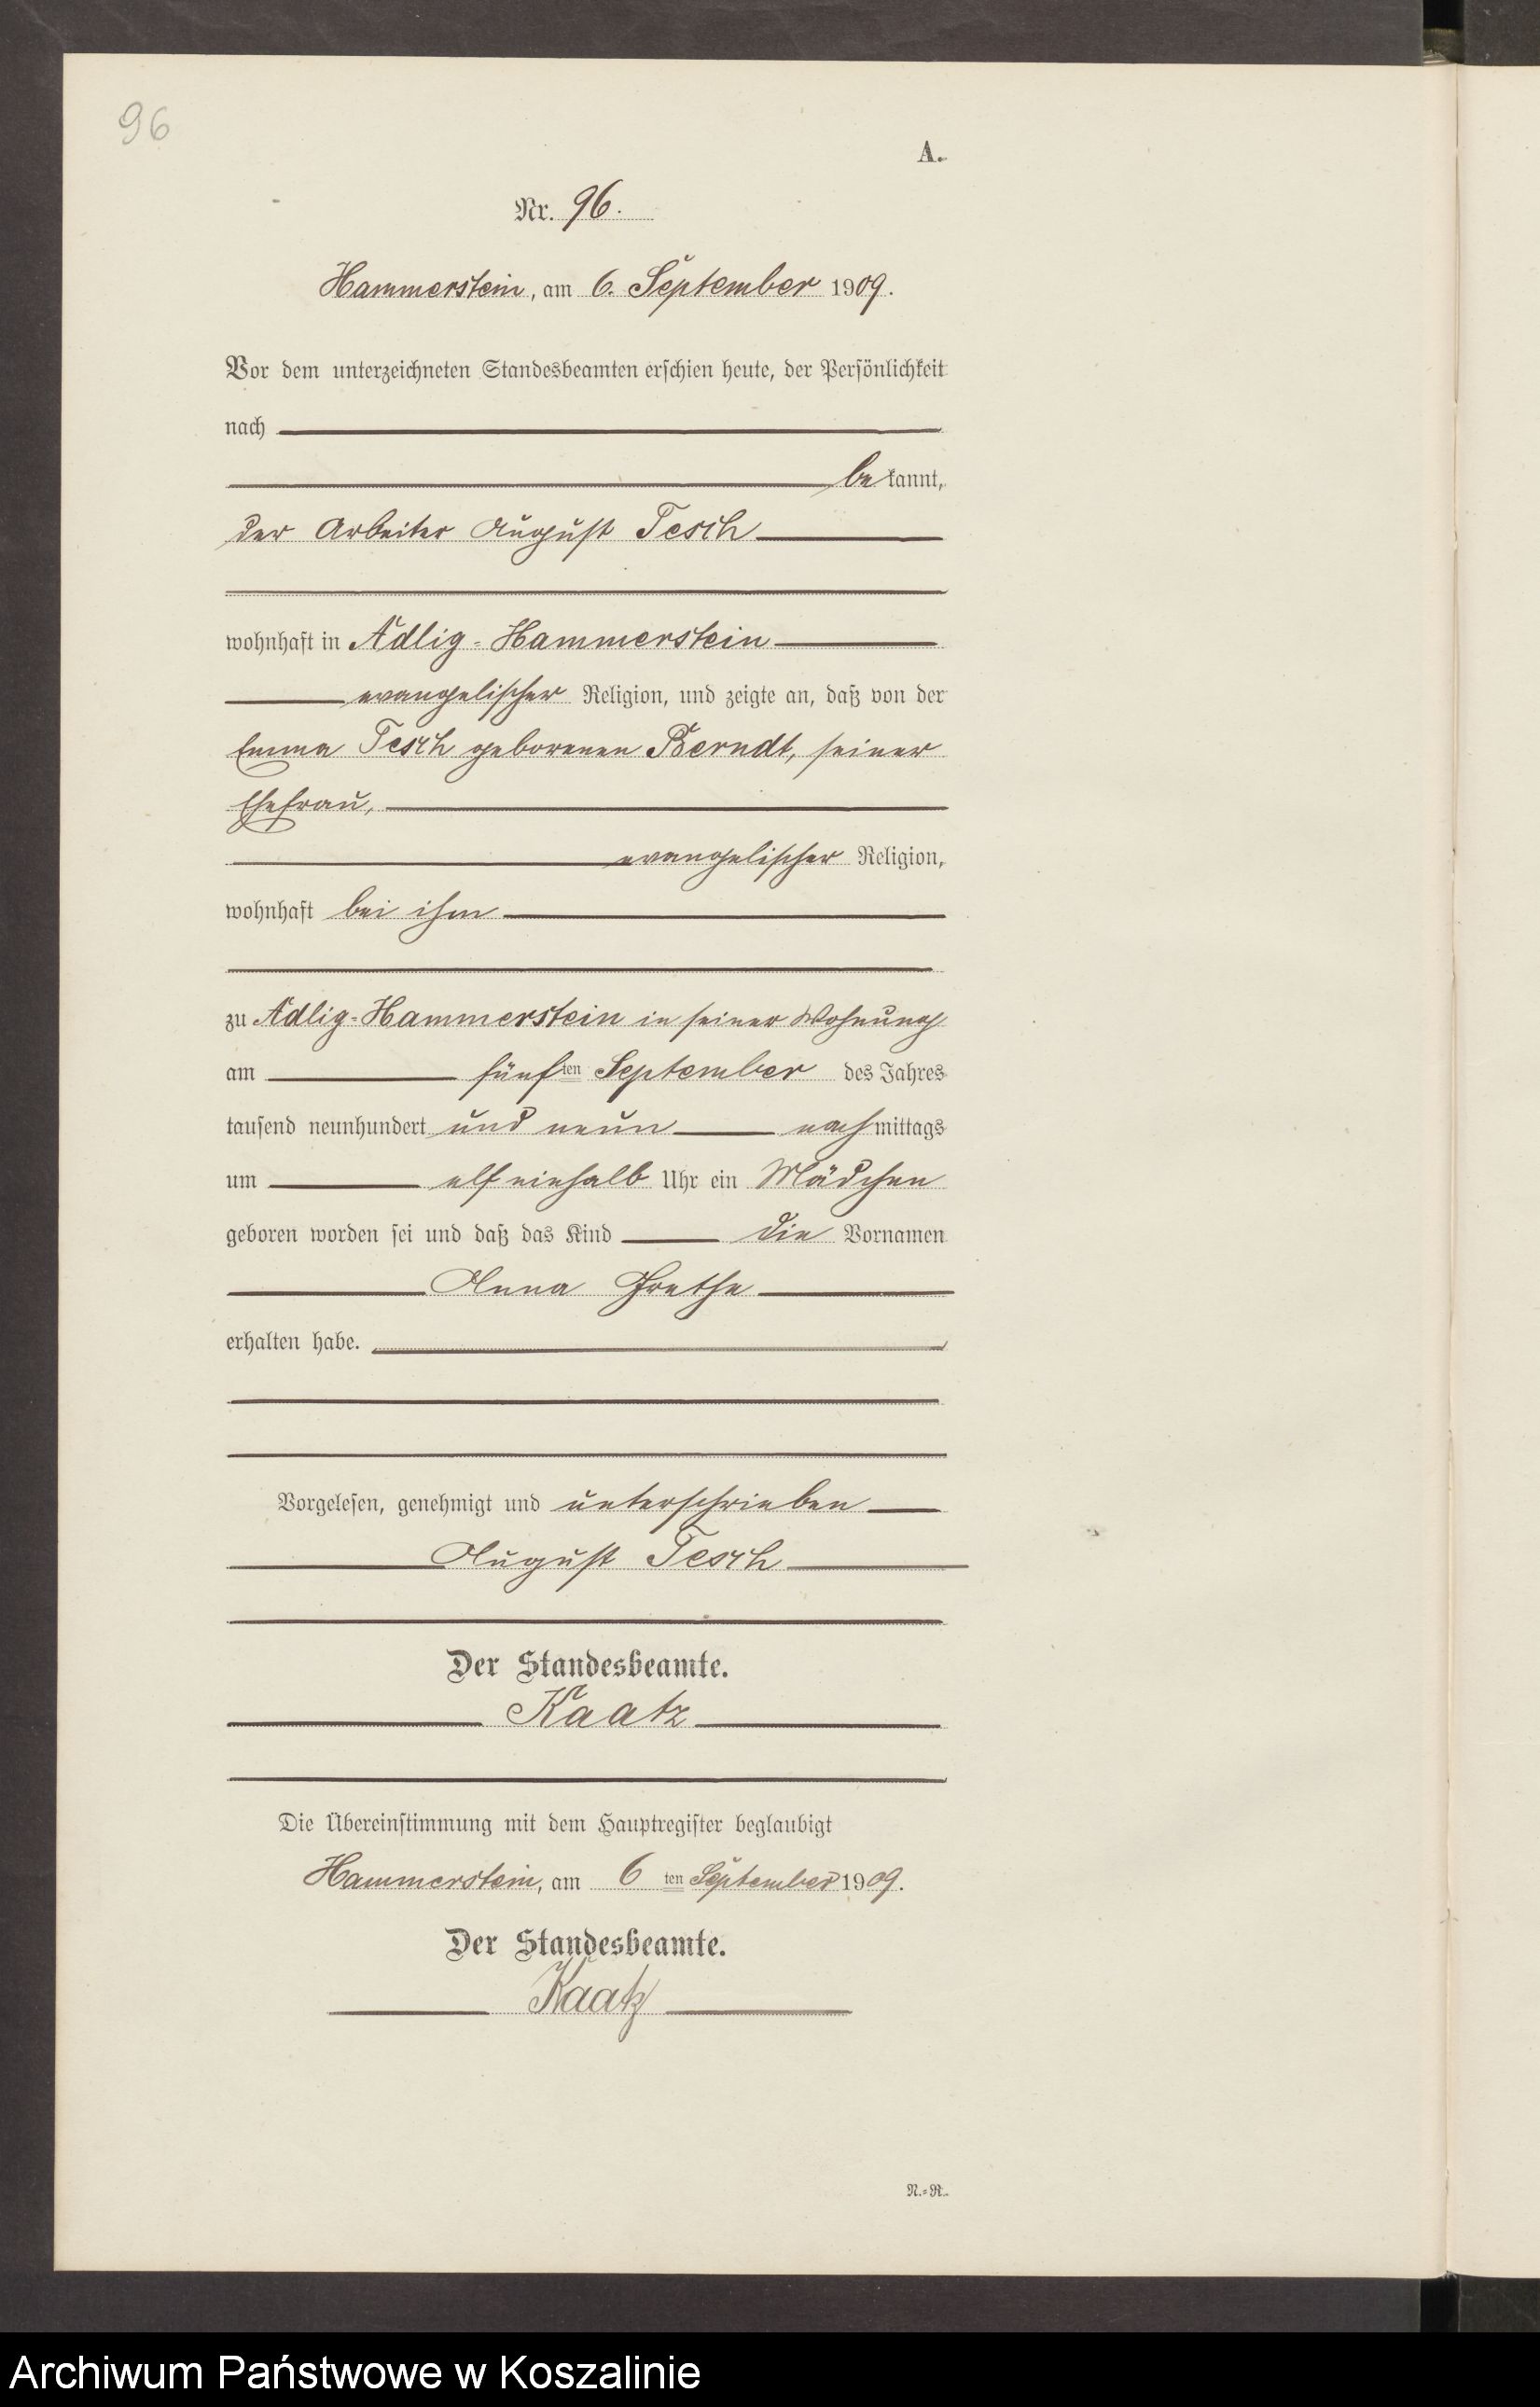 96
A.
Nr. 96.
Hammerstein, am 6. September 1909.
Vor dem unterzeichneten Standesbeamten erschien heute, der Persönlichkeit
nach
bekannt,
der Arbeiter August Tesch
wohnhaft in Adlig-Hammerstein
evangelischer Religion, und zeigte an, daß von der
Emma Tesch geborenen Berndt, seiner
Ehefrau,
evangelischer Religion,
wohnhaft bei ihm
zu Adlig-Hammerstein in seiner Wohnung
am fünften September des Jahres
tausend neunhundert und neun nachmittags
um elf einhalb Uhr ein Mädchen
geboren worden sei und daß das Kind die Vornamen
Anna Grethe
erhalten habe.
Vorgelesen, genehmigt und unterschrieben
August Tesch
Der Standesbeamte.
Kaatz
Die Übereinstimmung mit dem Hauptregister beglaubigt
Hammerstein, am 6ten September 1909.
Der Standesbeamte.
Kaatz
N.-R.
Archiwum Państwowe w Koszalinie